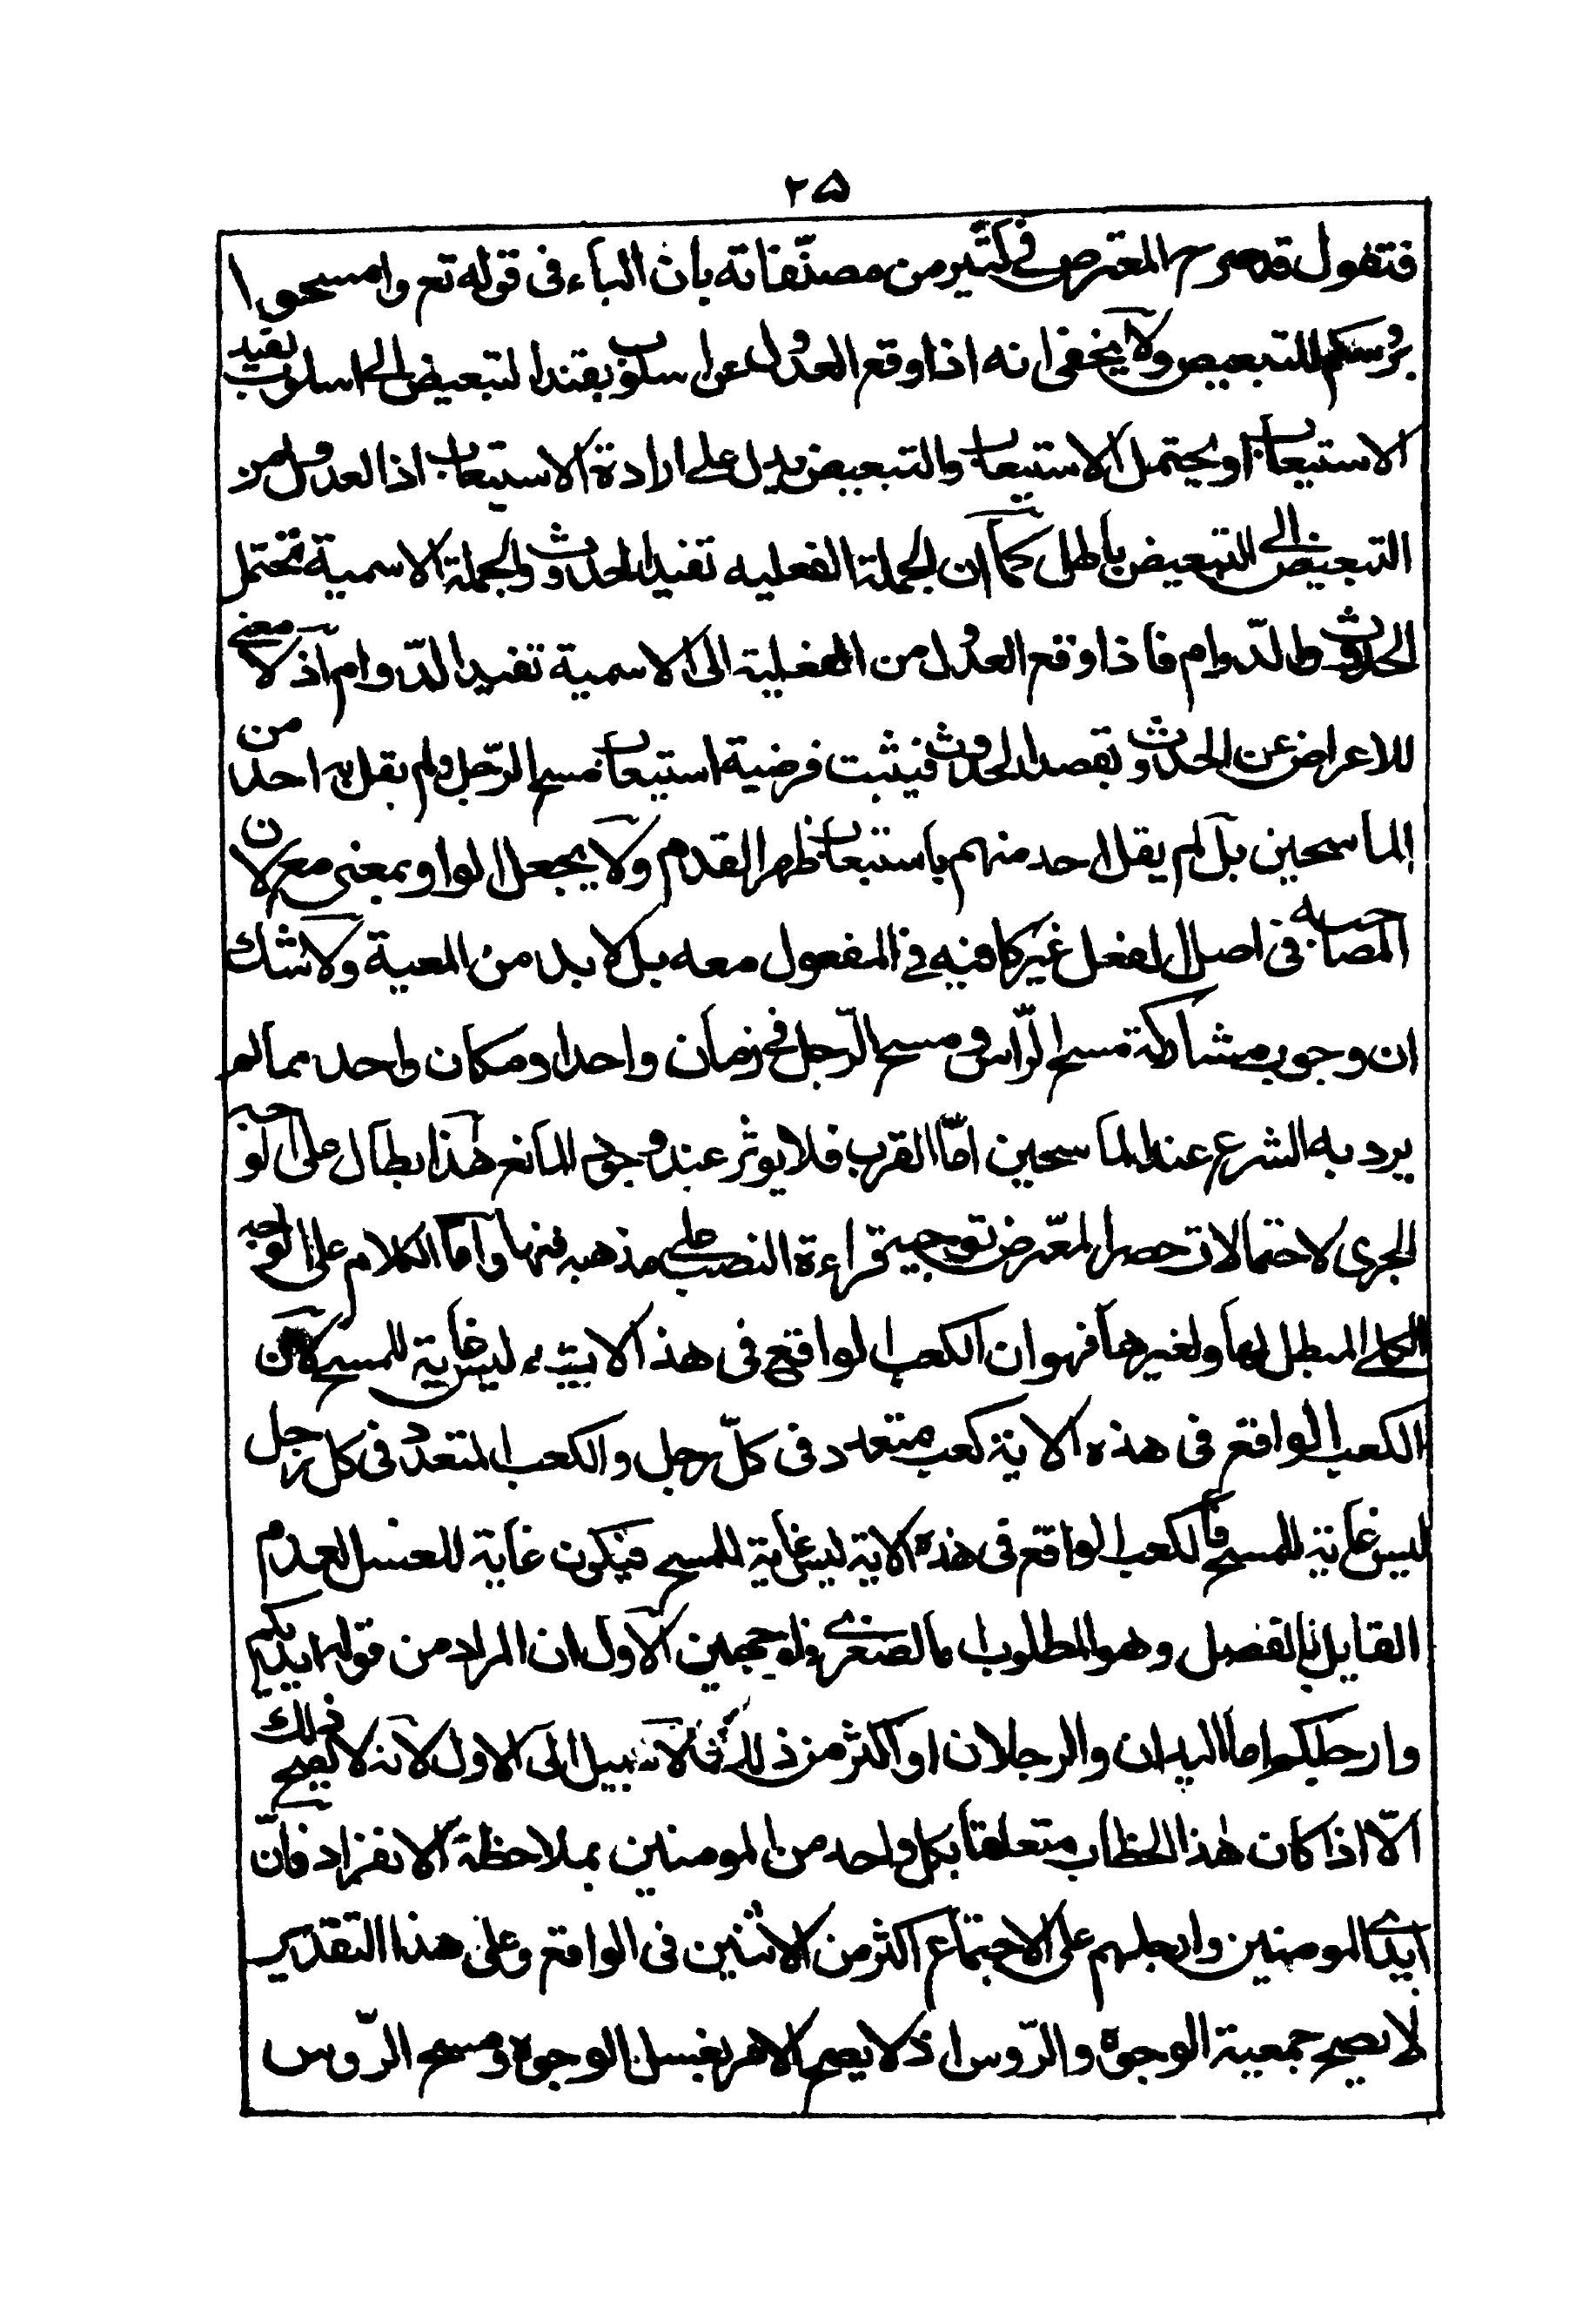 ٢۵
فتقول قد صرح المعترض فى كثير من مصنّفاته بان الباء فى قوله تع وامسحوا
برؤسكم للتبعيض ولا يخفى انه اذا وقع العدول عن اسلوب يفيد التبعيض الى اسلوب يفيد
الاستيعاب او يحتمل الاستيعاب والتبعيض يدل على ارادة الاستيعاب اذ العدول من
التبعيض الى التبعيض باطل كما ان الجملة الفعليه تفيد الحدوث والجملة الاسمية تحتمل
الحدوث والدّوام فاذا وقع العدول من الفعلية الى الاسمية تفيد الدّوام اذ لا معنى
للاعراض عن الحدوث وتقصد الحدوث فيثبت فرضية استيعاب مسح الرّجل ولم يقل به احد من
الماسحين بل لم يقل احد منهم باستيعاب ظهر القدم ولا يجعل الواو بمعنى مع لان
المصاحبة فى اصل الفعل غير كافيه فى المفعول معه بل لا بد من المعية ولا شك
ان وجوب مشاركة مسح الرّاس فى مسح الرّجل فى زمان واحد او مكان واحد مما لم
يرد به الشرع عند الماسحين امّا القرب فلا يوثر عند وجود المانع هذا ابطال على الوجه
الجرى لاحتمالات حصر المعترض توجيه قراءة النصب على مذهبه فيها واما الكلام على الوجه
الكلى المبطل لها ولغيرها فهو ان الكعب الواقع فى هذ الاية ليس غاية للمسح لان
الكعب الواقع فى هذه الاية كعب متعدد فى كلّ رجل والكعب المتعدد فى كل رجل
ليس غاية للمسح فالكعب الواقع فى هذه الاية ليس غاية للمسح فيكون غاية للغسل لعدم
القايل بالفصل وهو المطلوب اما الصغرى فلوجهين الاول ان المراد من قوله ايديكم
وارجلكم اما اليدان والرجلان او اكثر من ذلك لا سبيل الى الاول لانه لا يصح ذلك
الّا اذا كان هذا الخطاب متعلقا بكل واحد من المومنين بملاحظة الانفراد فانّ
ايدى المومنين وارجلهم على الاجتماع اكثر من الاثنين فى الواقع وعلى هذا التقدير
لا يصح جمعية الوجوه والرّوس اذ لا يصح الامر بغسل الوجوه ومسح الرّوس